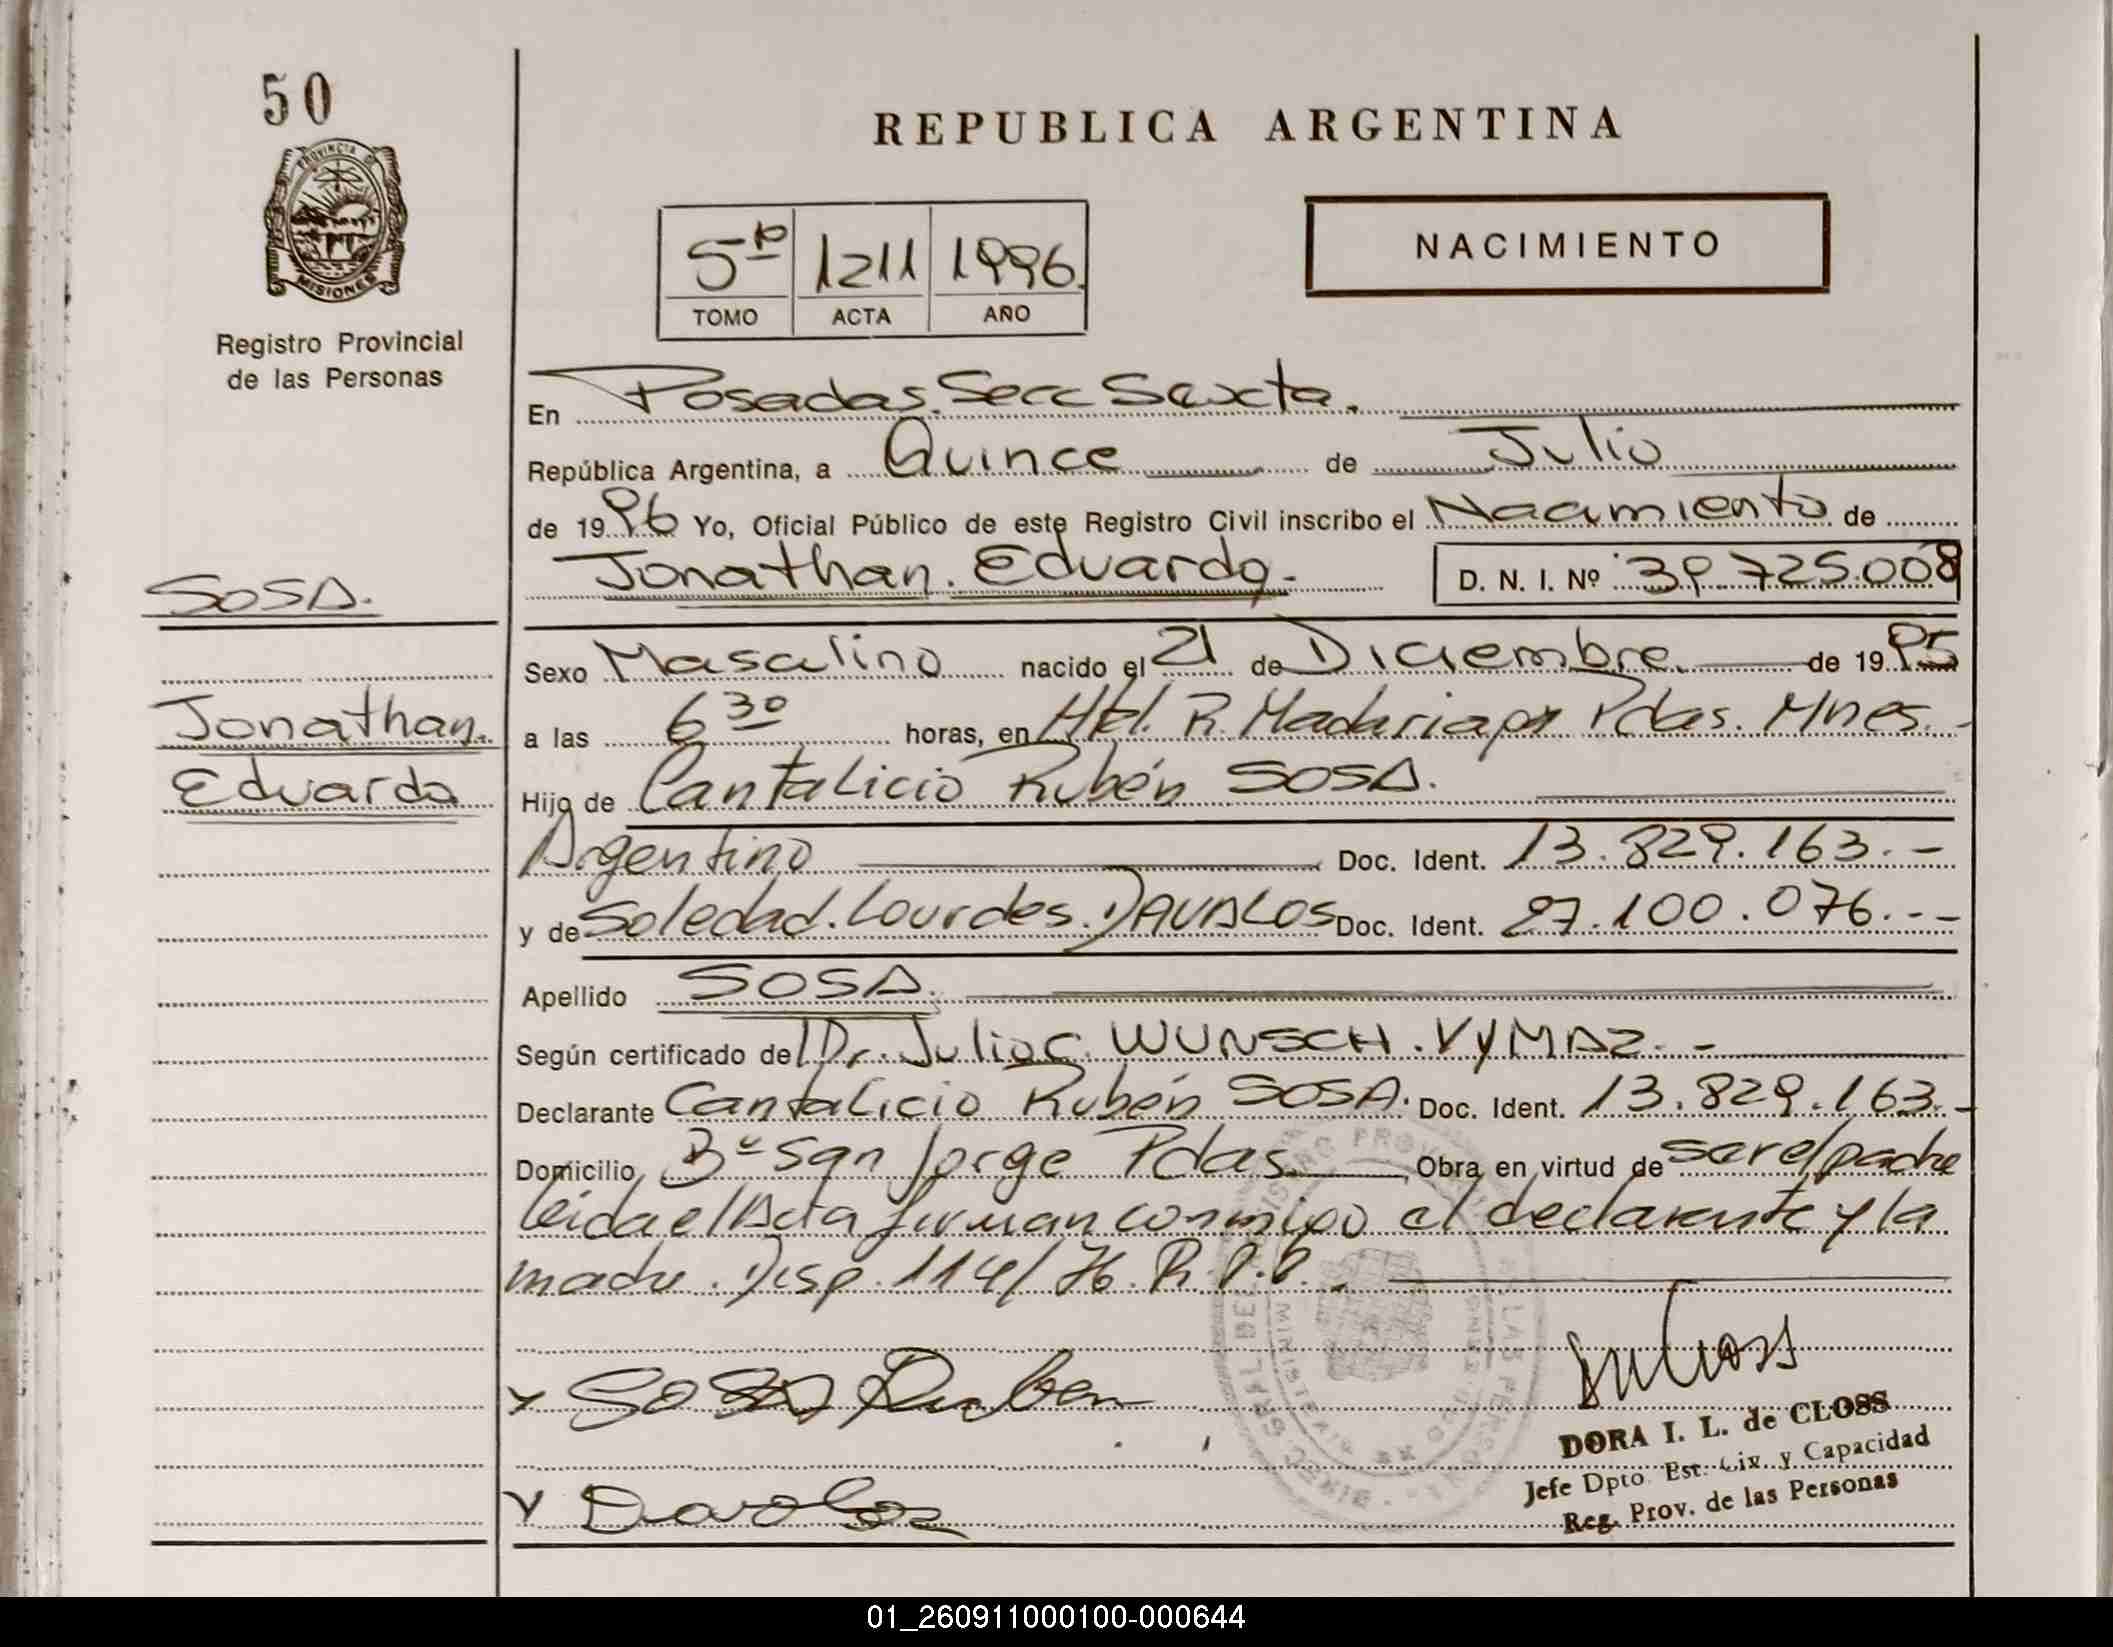 50
PROVINCIA D
MISIONES
Registro Provincial
de las Personas
REPUBLICA ARGENTINA
5to 1211 1996.
TOMO ACTA AÑO
NACIMIENTO
En Posadas. Secc Sexta.
República Argentina, a Quince de Julio
de 1996 Yo, Oficial Público de este Registro Civil inscribo el Nacimiento de
Jonathan. Eduardo.- D. N. I. Nº 39.725.008
SOSA.
Jonathan.
Eduardo
Sexo Masculino nacido el 21 de Diciembre. de 1995
a las 6 30 horas, en Htal. R. Madariaga Pdas. Mnes.-
Hijo de Cantalicio Rubén SOSA.
Argentino Doc. Ident. 13.829.163.-
y de Soledad. Lourdes. DAVALOS Doc. Ident. 27.100.076.--
Apellido SOSA.
Según certificado de Dr. Julio C. WUNSCH. VYMAZ.-
Declarante Cantalicio Rubén SOSA. Doc. Ident. 13.829.163.-
Domicilio Bº San Jorge Pdas. Obra en virtud de ser el padre
leida el Acta firman conmigo el declarante y la
madre. Disp. 114/76. R.P.P.-
Sosa Ruben
Davalos
DORA I. L. de CLOSS
Jefe Dpto. Est. Civ. y Capacidad
Reg. Prov. de las Personas
01_260911000100-000644